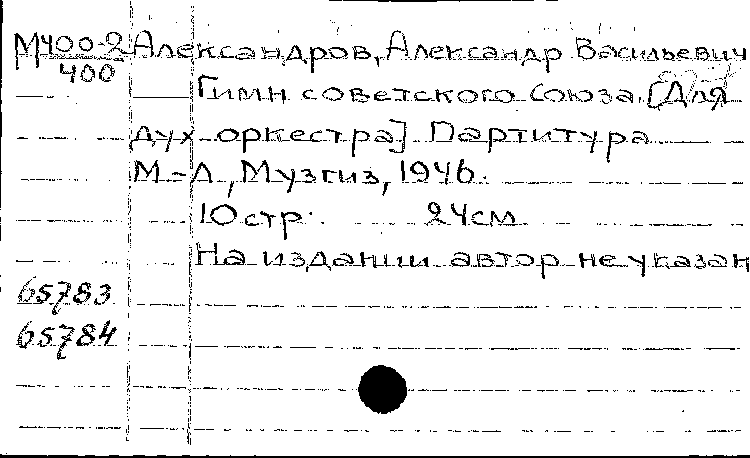 М400-2 Александров, Александр Васильевич
400
Гимн советского Союза. [Для
дух. оркестра] Партитура
М.-Л., Музгиз, 1946.
10 стр. 24см
На издании автор не указан
65783
65784